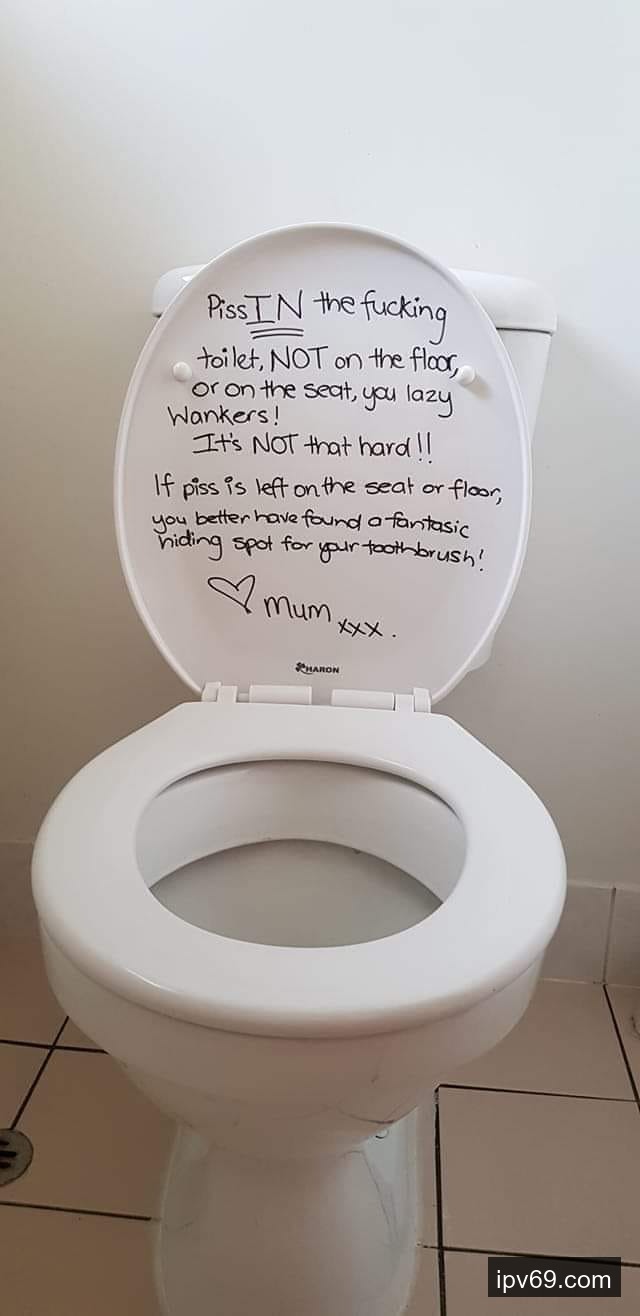 Piss IN the fucking
toilet, NOT on the floor,
or on the seat, you lazy
Wankers!
It's NOT that hard!!
If piss is left on the seat or floor,
you better have found a fantasic
hiding spot for your toothbrush!
♡ Mum xxx.
HARON
ipv69.com